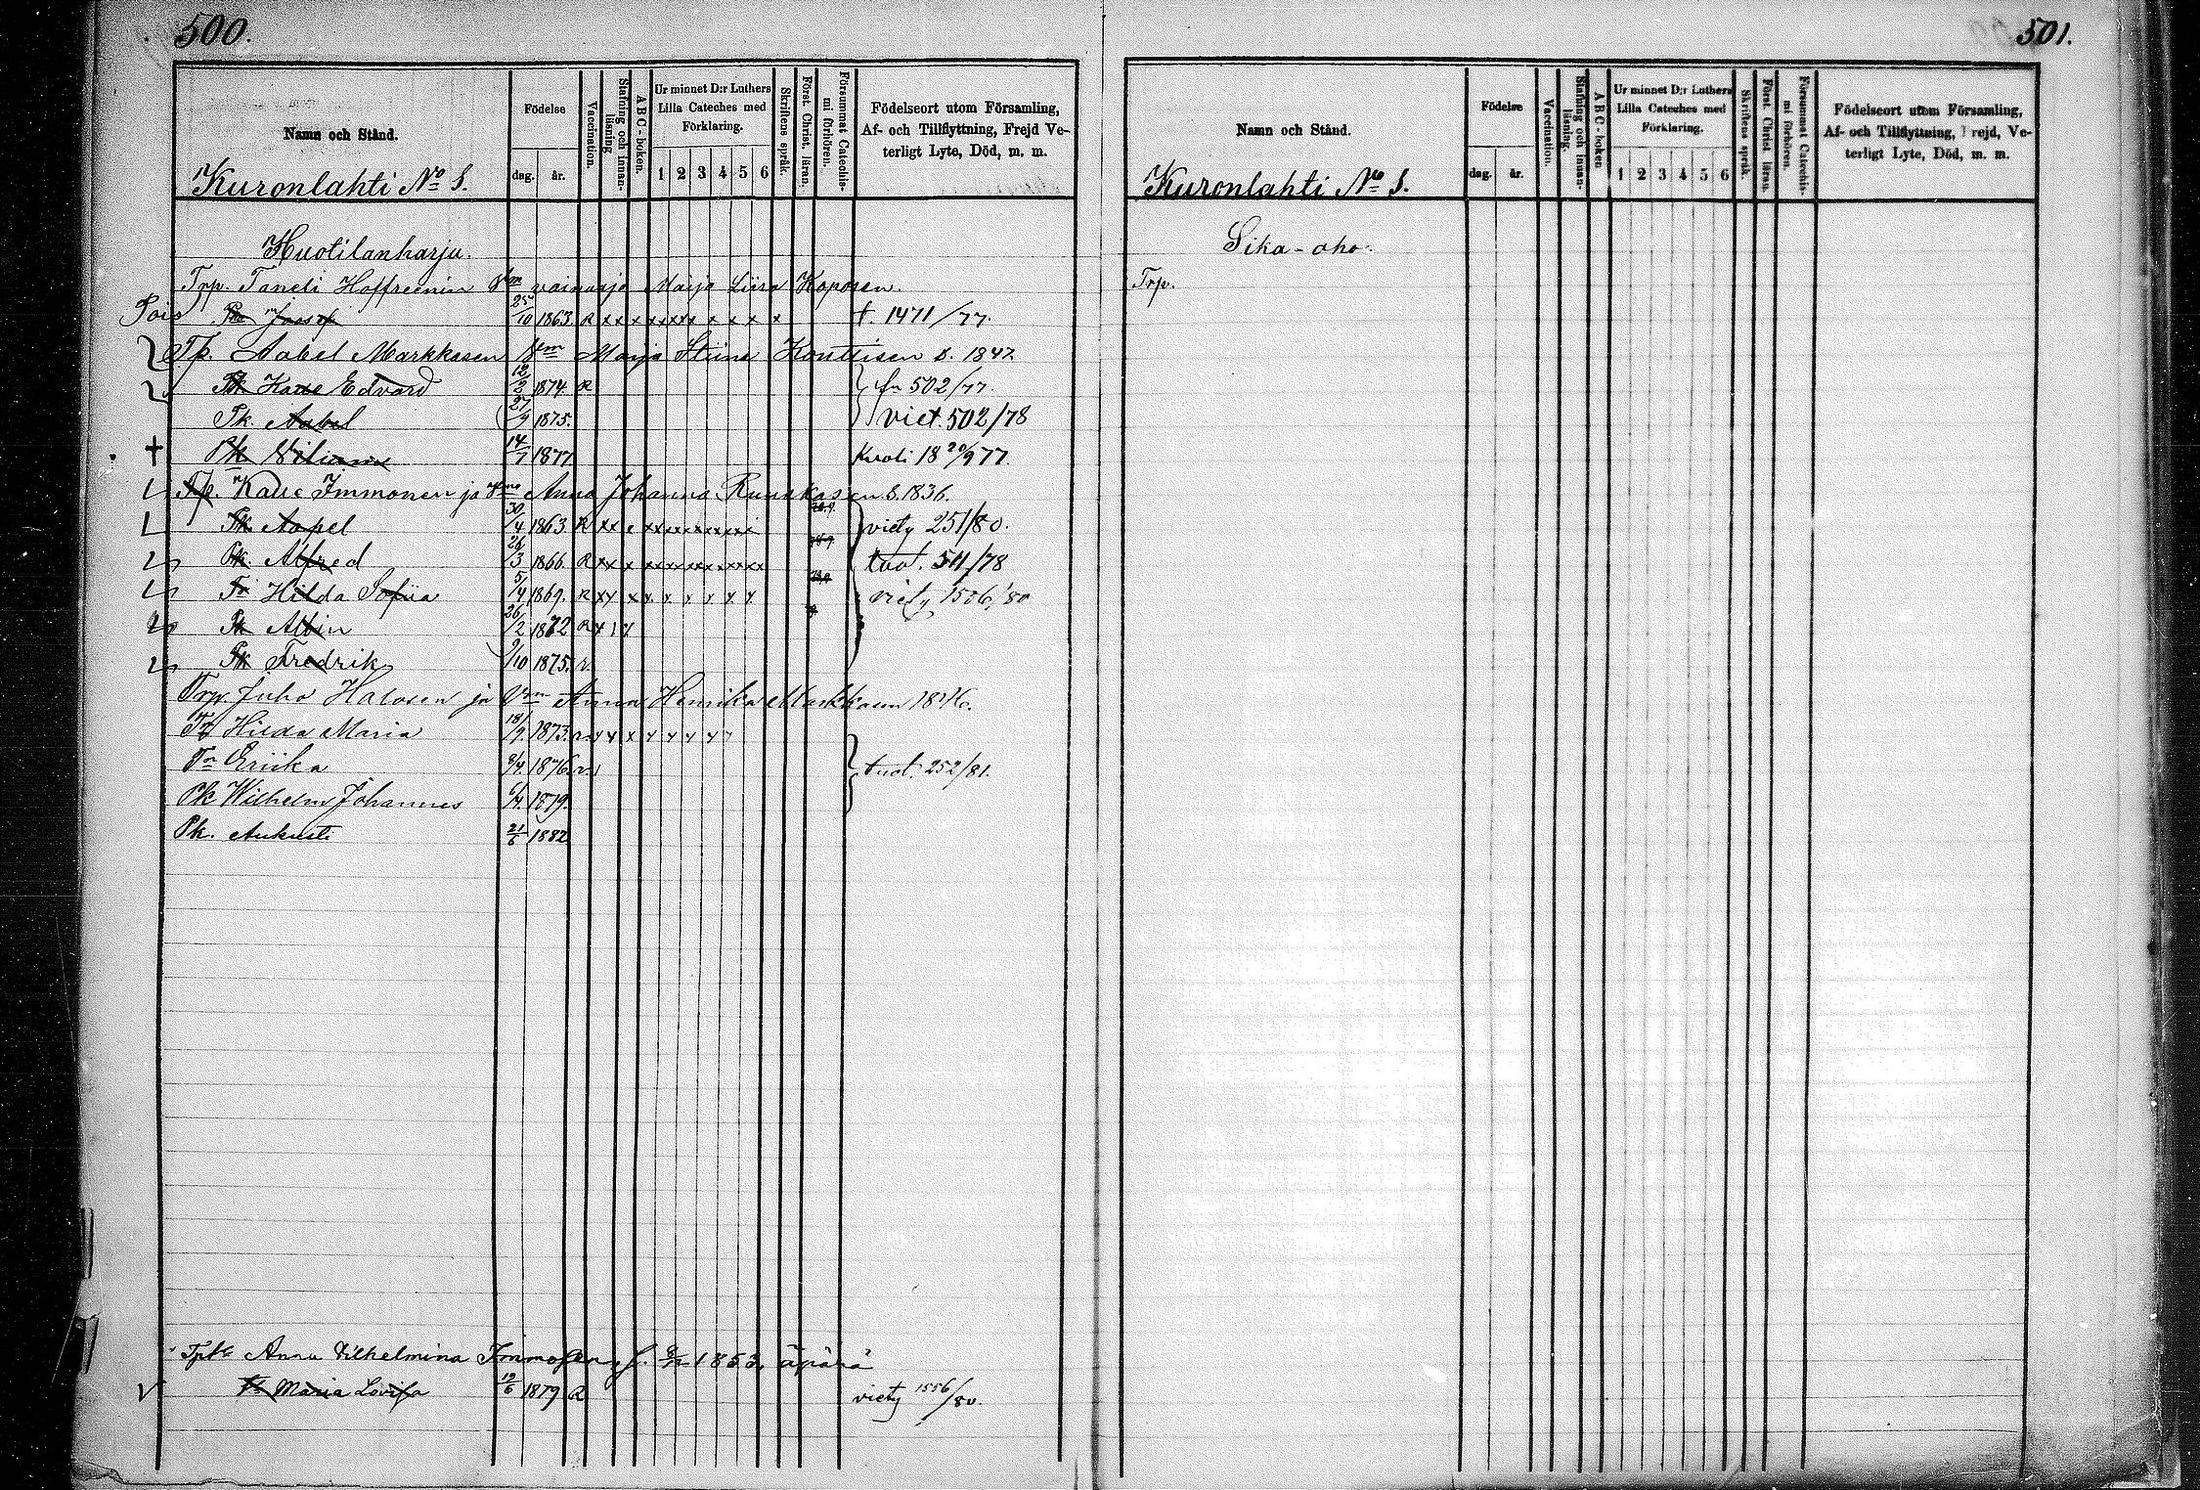 500.
Namn och Stånd.
Födelse
dag. år.
Vaccination.
Stafning och innanläsning
A B C - boken.
Ur minnet D:r Luthers Lilla Cateches med Förklaring.
1 2 3 4 5 6
Skriftens språk.
Först. Christ. läran.
Försummat Catechismi förhören.
Födelseort utom Församling,
Af- och Tillflyttning, Frejd Ve-
terligt Lyte, Död, m. m.
Kuronlahti No 8.
Huotilanharju.
Trp. Taneli Hoffreenin vaimo Maija Liisa Koposen.
Pois Pk Joosep 25/10 1863. R x x x x x x x x x x x t. 1471/77.
Tp. Aabel Markkasen Maija Stiina Konttisen s. 1847
Pk Kalle Edvard 12/2 1874. R fr 502/77.
Pk. Aabel 27/9 1875. viet. 502/78
† Pk Viliam 14/7 1877 kuoli 18 20/9 77.
Tp. Kalle Immonen ja Anna Johanna Ruuskasen s. 1836.
Pk Aapel 30/4 1863 R viety 251/80.
Pk. Alfred 26/3 1866. R tuot. 511/78
Tr Hilda Sofiia 5/4 1869. R viety 1556/80
Pk Albin 26/2 1872 R
Pk Fredrik 9/10 1875. r.
Trp. Juho Halosen ja Anna Henrika Markkasen 1846.
Tr Hilda Maria 18/9. 1873. r
Tr Eriika 8/4. 1876. r tuot. 252/81.
Pk Wilhelm Johannes 6/4. 1879.
Pk. Aukusti 21/6 1882
Anna Vilhelmina Immosen, s. 1853. äpärä
Tr Maria Lovisa 19/6 1879 R viety 1556/80.
501.
Namn och Stånd.
Födelse
dag. år.
Vaccination.
Stafning och innanläsning.
A B C - boken
Ur minnet D:r Luthers Lilla Cateches med Förklaring.
1 2 3 4 5 6
Skriftens språk.
Först Christ läran.
Försummat Catechismi förhören.
Födelseort utom Församling,
Af- och Tillflyttning, Frejd, Ve-
terligt Lyte, Död, m. m.
Kuronlahti No 8.
Sika-aho.
Trp.